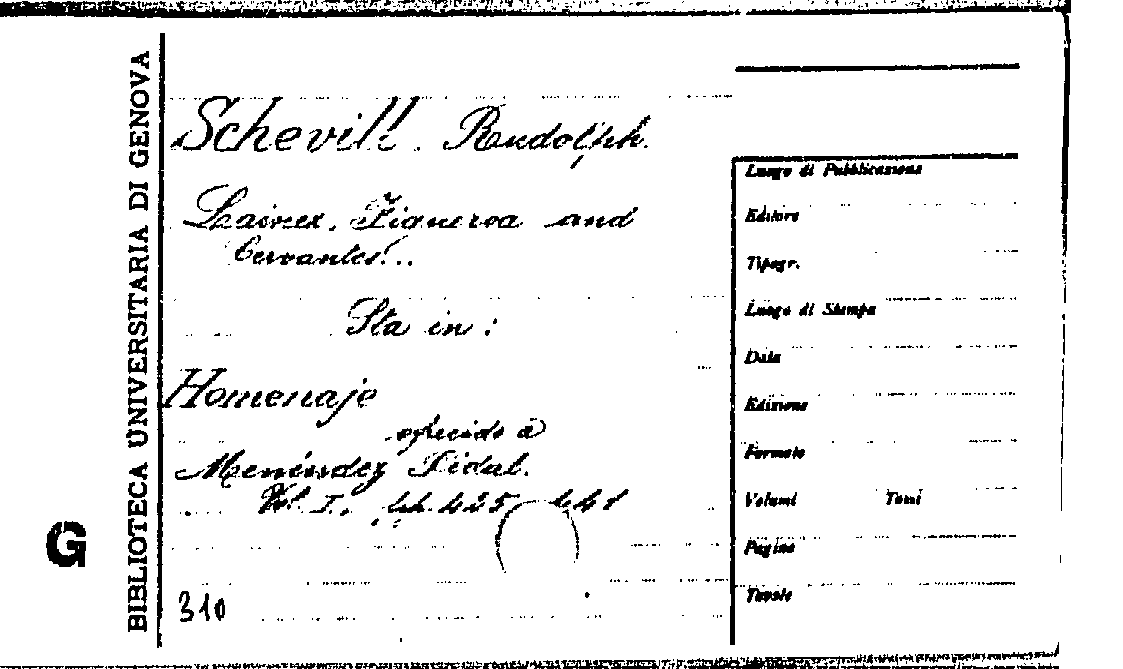 BIBLIOTECA UNIVERSITARIA DI GENOVA
G
Schevill. Rudolph.
Lainez, Figueroa and
Cervantes...
Sta in:
Homenaje
ofrecido à
Menéndez Pidal.
Vol. I, pp. 425 441
310
Luogo di Pubblicazione
Editore
Tipogr.
Luogo di Stampa
Data
Edizione
Formato
Volumi Tomi
Pagine
Tavole